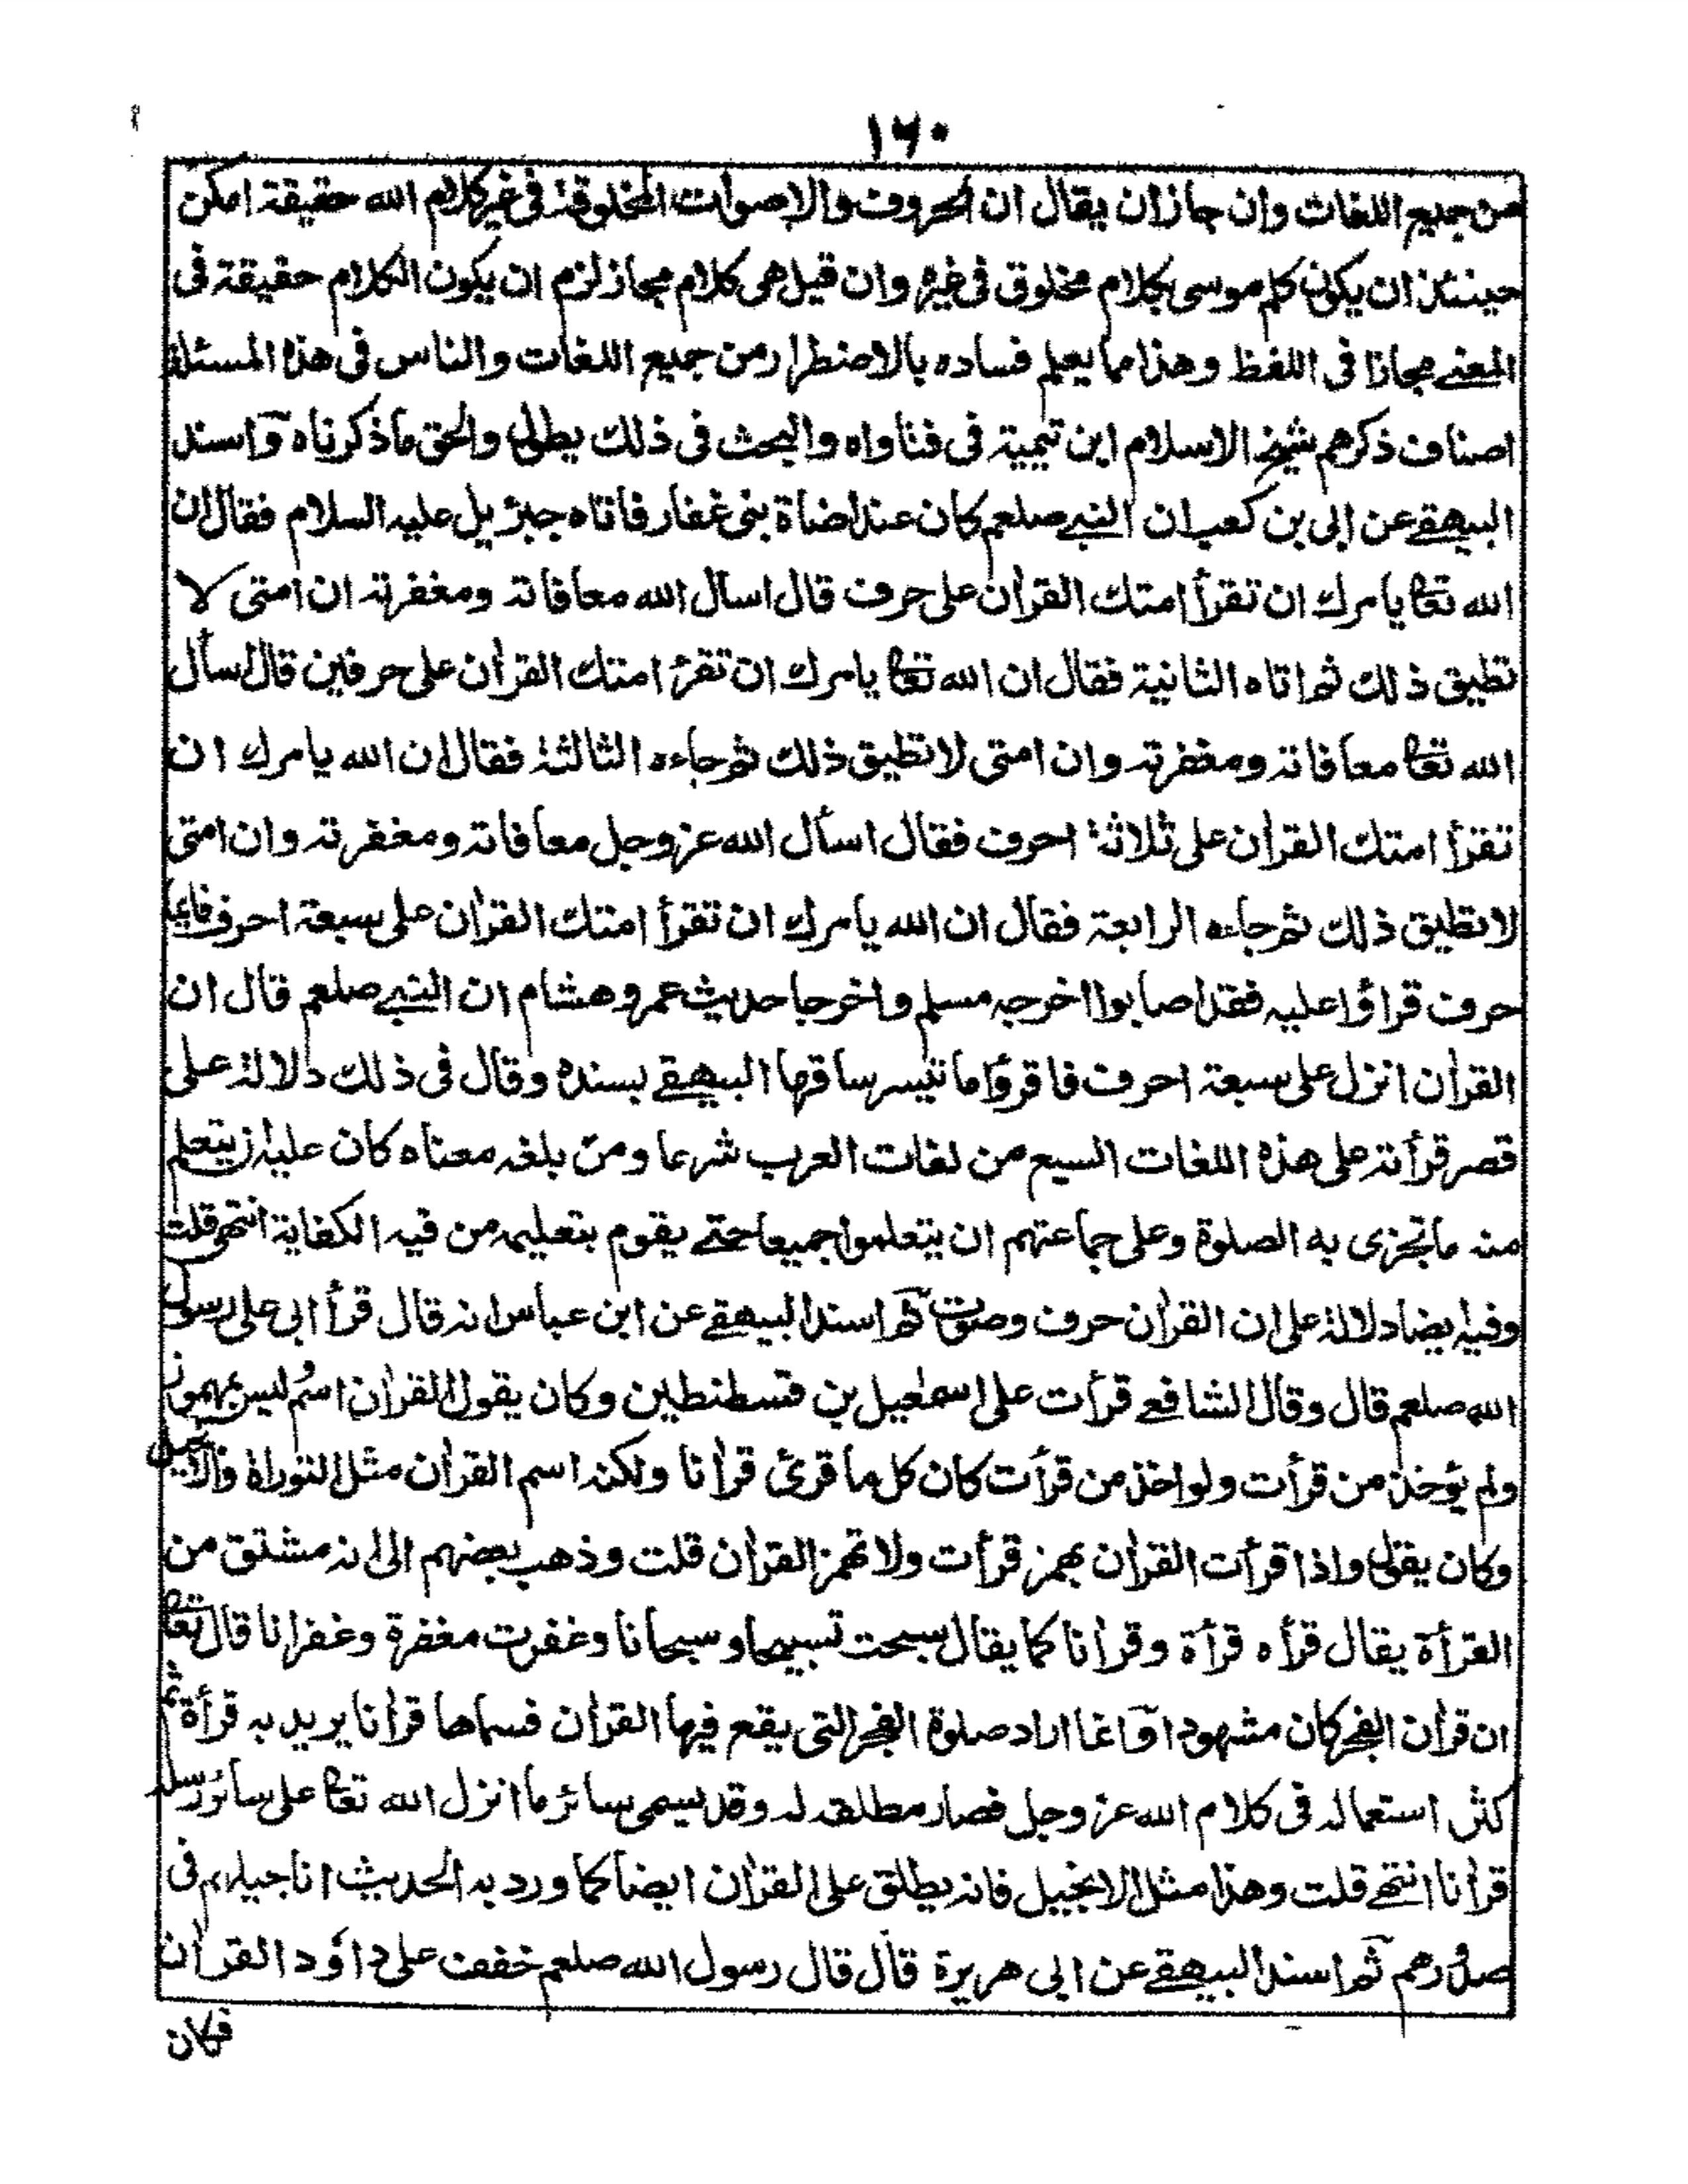 ١٦٠
من جميع اللغات وان جاز ان يقال ان الحروف والاصوات المخلوقة فى غير كلام الله حقيقة امكن
حينئذ ان يكون كلم موسى بكلام مخلوق فى غيره وان قيل هى كلام مجاز لزم ان يكون الكلام حقيقة فى
المعنے مجازا فى اللفظ وهذا مما يعلم فساده بالاضطرار من جميع اللغات والناس فى هذه المسئلة
اصناف ذكرهم شيخ الاسلام ابن تيمية فى فتاواه والبحث فى ذلك يطول والحق ما ذكرناه واسند
البيهقے عن ابى بن كعب ان النبے صلعم كان عند اضاة بنى غفار فاتاه جبرئيل عليه السلام فقال ان
الله تعا يامرك ان تقرأ امتك القران على حرف قال اسأل الله معافاته ومغفرته ان امتى لا
تطيق ذلك ثم اتاه الثانية فقال ان الله تعا يامرك ان تقرء امتك القران على حرفين قال اسأل
الله تعا معافاته ومغفرته وان امتى لا تطيق ذلك ثم جاءه الثالثة فقال ان الله يامرك ان
تقرأ امتك القران على ثلاثة احرف فقال اسأل الله عز وجل معافاته ومغفرته وان امتى
لا تطيق ذلك ثم جاءه الرابعة فقال ان الله يامرك ان تقرأ امتك القران على سبعة احرف فايما
حرف قراؤا عليه فقد اصابوا اخرجه مسلم واخرجا حديث عمر وهشام ان النبے صلعم قال ان
القران انزل على سبعة احرف فاقرؤا ما تيسر ساقها البيهقے بسنده وقال فى ذلك دلالة على
قصر قرأته على هذه اللغات السبع من لغات العرب شرعا ومن بلغه معناه كان عليه ان يتعلم
منه ما تجزى به الصلوة وعلى جماعتهم ان يتعلموا جميعا حتے يقوم بتعليمه من فيه الكفاية انتهى قلت
وفيه ايضا دلالة على ان القران حرف وصوت ثم اسند البيهقے عن ابن عباس انه قال قرأ ابى على رسول
الله صلعم قال وقال الشافعے قرأت على اسمعيل بن قسطنطين وكان يقول القران اسم ليس بمهموز
ولم يؤخذ من قرأت ولو اخذ من قرأت كان كل ما قرئ قرانا ولكنه اسم القران مثل التوراة والانجيل
وكان يقول واذا قرأت القران بهمز قرأت ولا تهمز القران قلت وذهب بعضهم الى انه مشتق من
القرأة يقال قرأه قرأة وقرأنا كما يقال سبحت تسبيحا وسبحانا وغفرت مغفرة وغفرانا قال تعا
ان قران الفجر كان مشهودا وانما اراد صلوة الفجر التى يقع فيها القران فسماها قرأنا يريد به قرأة ثم
كثر استعماله فى كلام الله عز وجل فصار مطلقه له وقد يسمى سائر ما انزل الله تعا على سائر رسله
قرأنا انتهے قلت وهذا مثل الانجيل فانه يطلق على القران ايضا كما ورد به الحديث اناجيلهم فى
صدورهم ثم اسند البيهقے عن ابى هريرة قال قال رسول الله صلعم خففت على داؤد القران
فكان